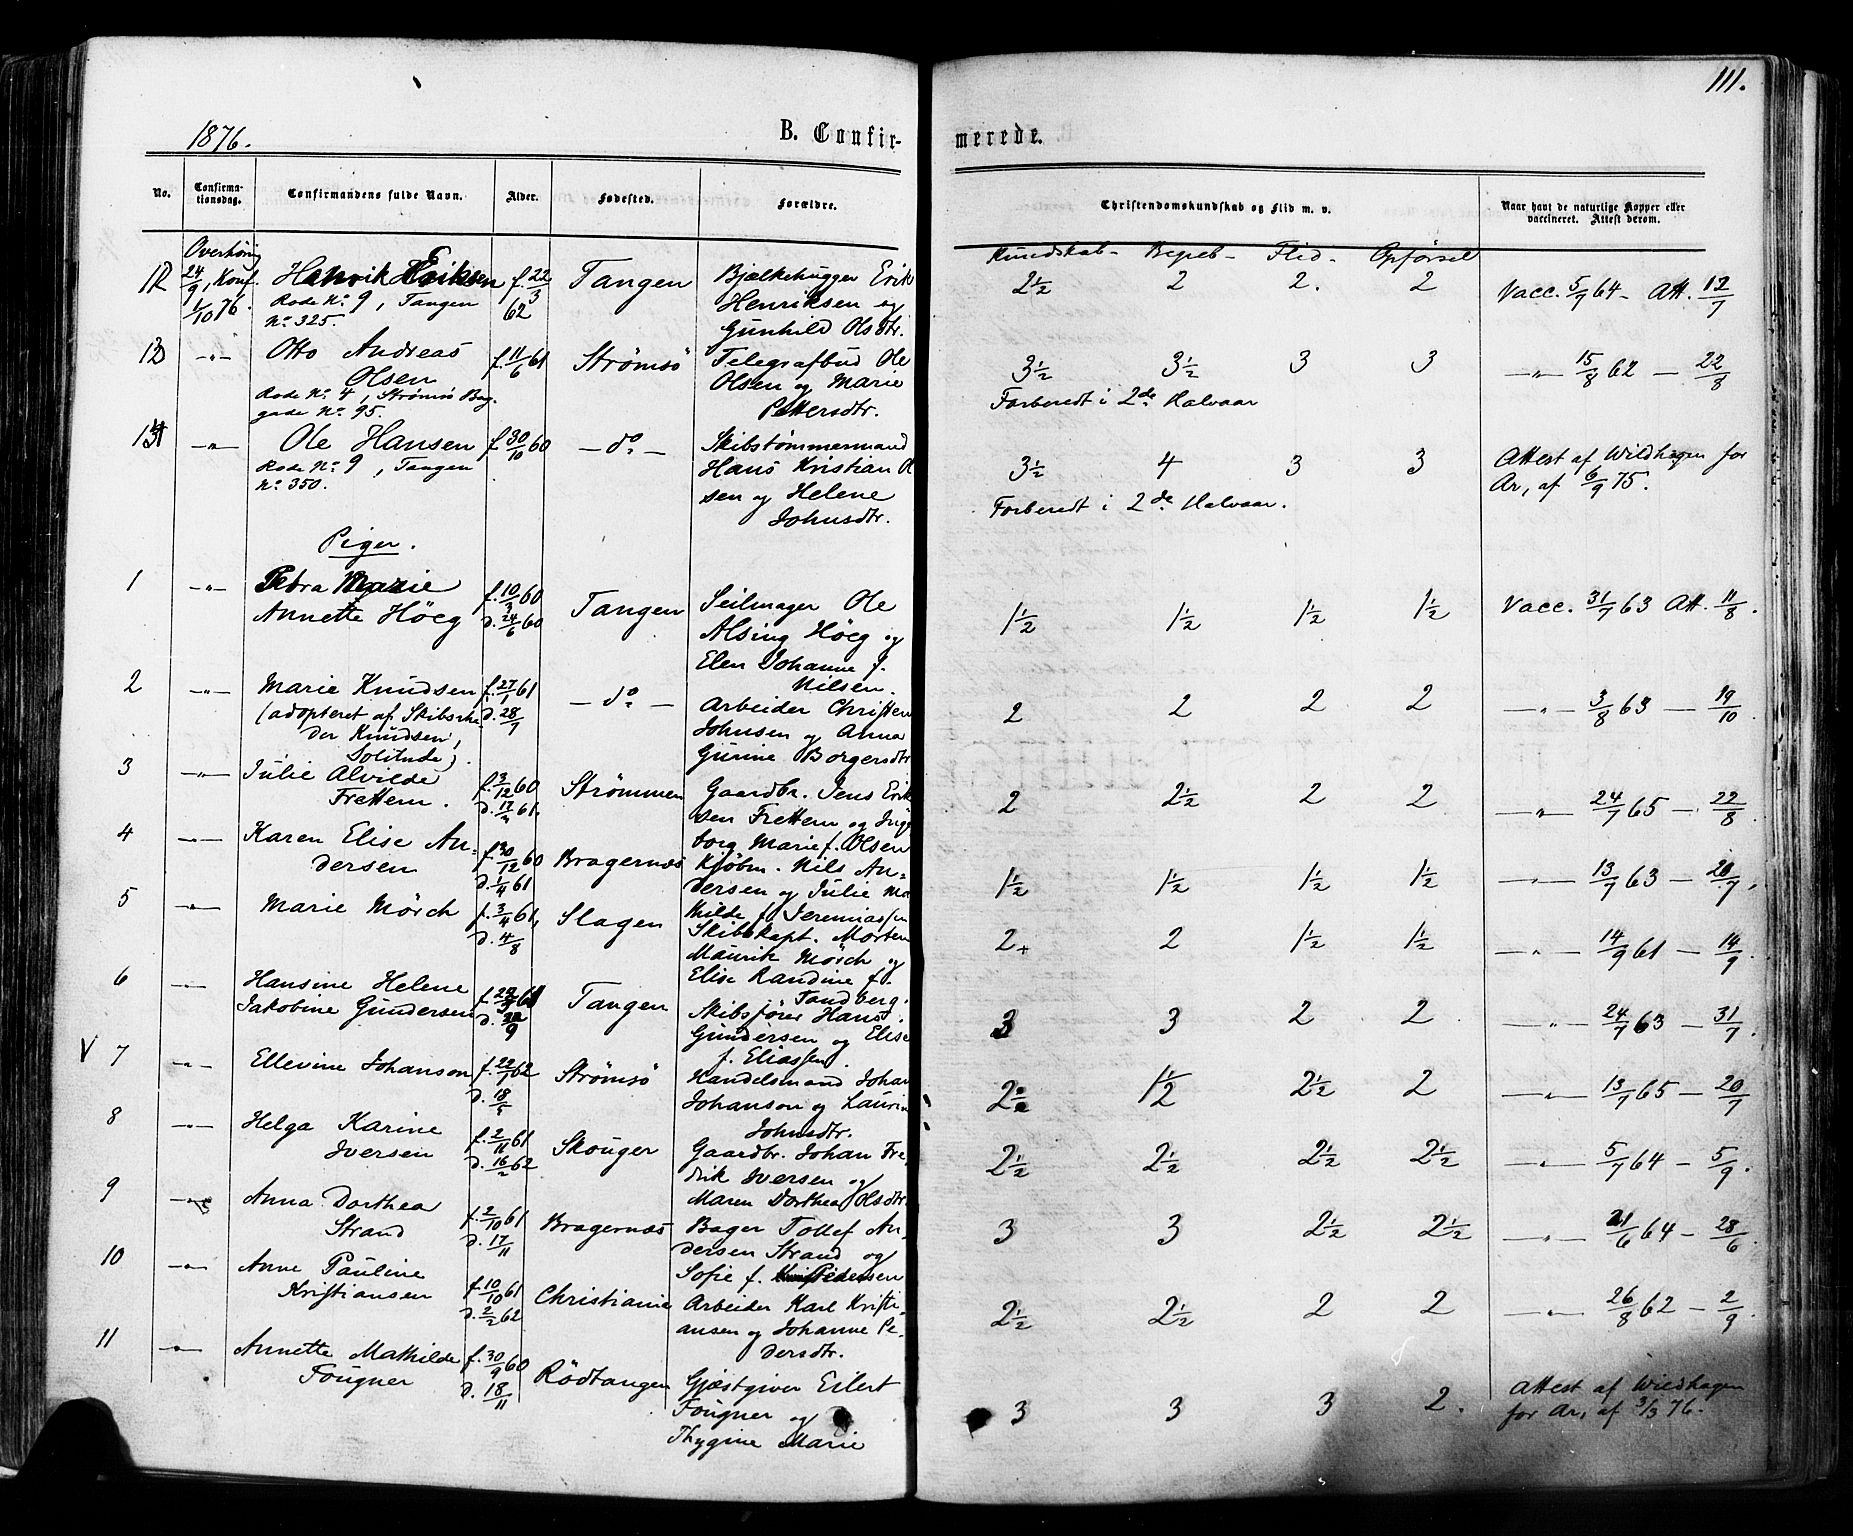 111.
1876.
B. Confir-
merede.
No.
Confirma-
tionsdag.
Confirmandens fulde Navn.
Alder.
Fødested.
Forældre.
Christendomskundskab og Flid m. v.
Naar havt de naturlige Kopper eller
vaccineret. Attest derom.
Overhøring
24/9, Konf.
1/10 76.
Kundskab - Begreb - Flid - Opførsel
12
Henrik Eriksen
Rode No 9, Tangen
No 325.
f. 22/3
62
Tangen
Bjælkehugger Erik
Henriksen og
Gunhild Olsdtr.
2½ 2 2. 2
Vacc. 5/9 64 - Att. 12/7
13
-"-
Otto Andreas
Olsen
Rode No 4, Strømsö Bag-
gade No 95.
f. 11/6 61
Strømsö
Telegrafbud Ole
Olsen og Marie
Pettersdtr.
3½ 3½ 3 3
Forberedt i 2de Halvaar
-"- 15/8 62 - 22/8
-"-
Ole Hansen
Rode No 9, Tangen
No 350.
f. 30/10 60
- do -
Skibstømmermand
Hans Kristian Ol
sen og Helene
Johnsdtr.
3½ 4 3 3
Forberedt i 2de Halvaar.
Attest af Wildhagen for
Ar, af 6/9 75.
Piger.
1
-"-
Petra Marie
Annette Höeg
f. 10/3 60
d. 24/6 60
Tangen
Seilmager Ole
Alsing Höeg og
Elen Johanne f.
Nilsen.
1½ 1½ 1½ 1½
Vacc. 31/7 63 Att. 11/8.
2
-"-
Marie Knudsen
(adopteret af Skibsrhe
der Knudsen,
Solitude)
f. 27/1 61
d. 28/7
- do -
Arbeider Christen
Johnsen og Anna
Gurine Borgersdtr
2 2 2 2
-"- 3/8 63 - 19/10
3
-"-
Julie Alvilde
Frettem.
f. 3/12 60
d. 17/2 61.
Strømmen
Gaardbr. Jens Erik
sen Frettem og Inge
borg Marie f. Olsen
2 2½ 2 2
-"- 24/7 65 - 22/8
4
-"-
Karen Elise An-
dersen
f. 30/12 60
d. 1/4 61
Bragernæs
Kjøbm. Nils An-
dersen og Julie Ma
thilde f. Jeremiassen
1½ 1½ 1½ 1½
-"- 13/7 63 - 20/7.
5
-"-
Marie Mörch
f. 3/4 61,
d. 4/8
Slagen
Skibskapt. Morten
Maurik Mörch og
Elise Randine f.
Tandberg.
2+ 2 1½ 1½
-"- 14/9 61 - 14/9.
6
-"-
Hansine Helene
Jakobine Gundersen
Tangen
Skibsfører Hans
Gundersen og Elise
f. Eliassen.
3 3 2 2
-"- 24/7 63 - 31/7
V 7
-"-
Ellevine Johanson
f. 22/1 62
Strømsö
Handelsmand Johan
Johanson og Laurine
Johnsdtr.
1½ 2½ 2
-"- 13/7 65 - 20/7
8
-"-
Helga Karine
Iversen
f. 2/11 61
d. 16/2 62
Skouger
Gaardbr. Johan Fre-
drik Iversen og
Maren Dorthea Olsdtr
2½ 2½ 2½ 2½
-"- 5/7 64 - 5/9.
9
-"-
Anna Dorthea
Strand
f. 2/10 61
d. 17/11
Bragernæs
Bager Tollef An-
dersen Strand og
Sofie f. Pedersen
3 3 2½ 2½
-"- 21/6 64 - 28/6.
10
-"-
Anne Pauline
Kristiansen
f. 10/10 61
d. 2/2 62
Christiania
Arbeider Karl Kristi-
ansen og Johanne Pe-
dersdtr.
2½ 2½ 2 2
-"- 26/8 62 - 2/9.
11
-"-
Annette Mathilde
Fougner
f. 30/9 60
d. 18/11
Rödtangen
Gjæstgiver Eilert
Fougner og
Thygine Marie
3 3 3 2.
Attest af Wildhagen
for Ar, af 3/3 76.